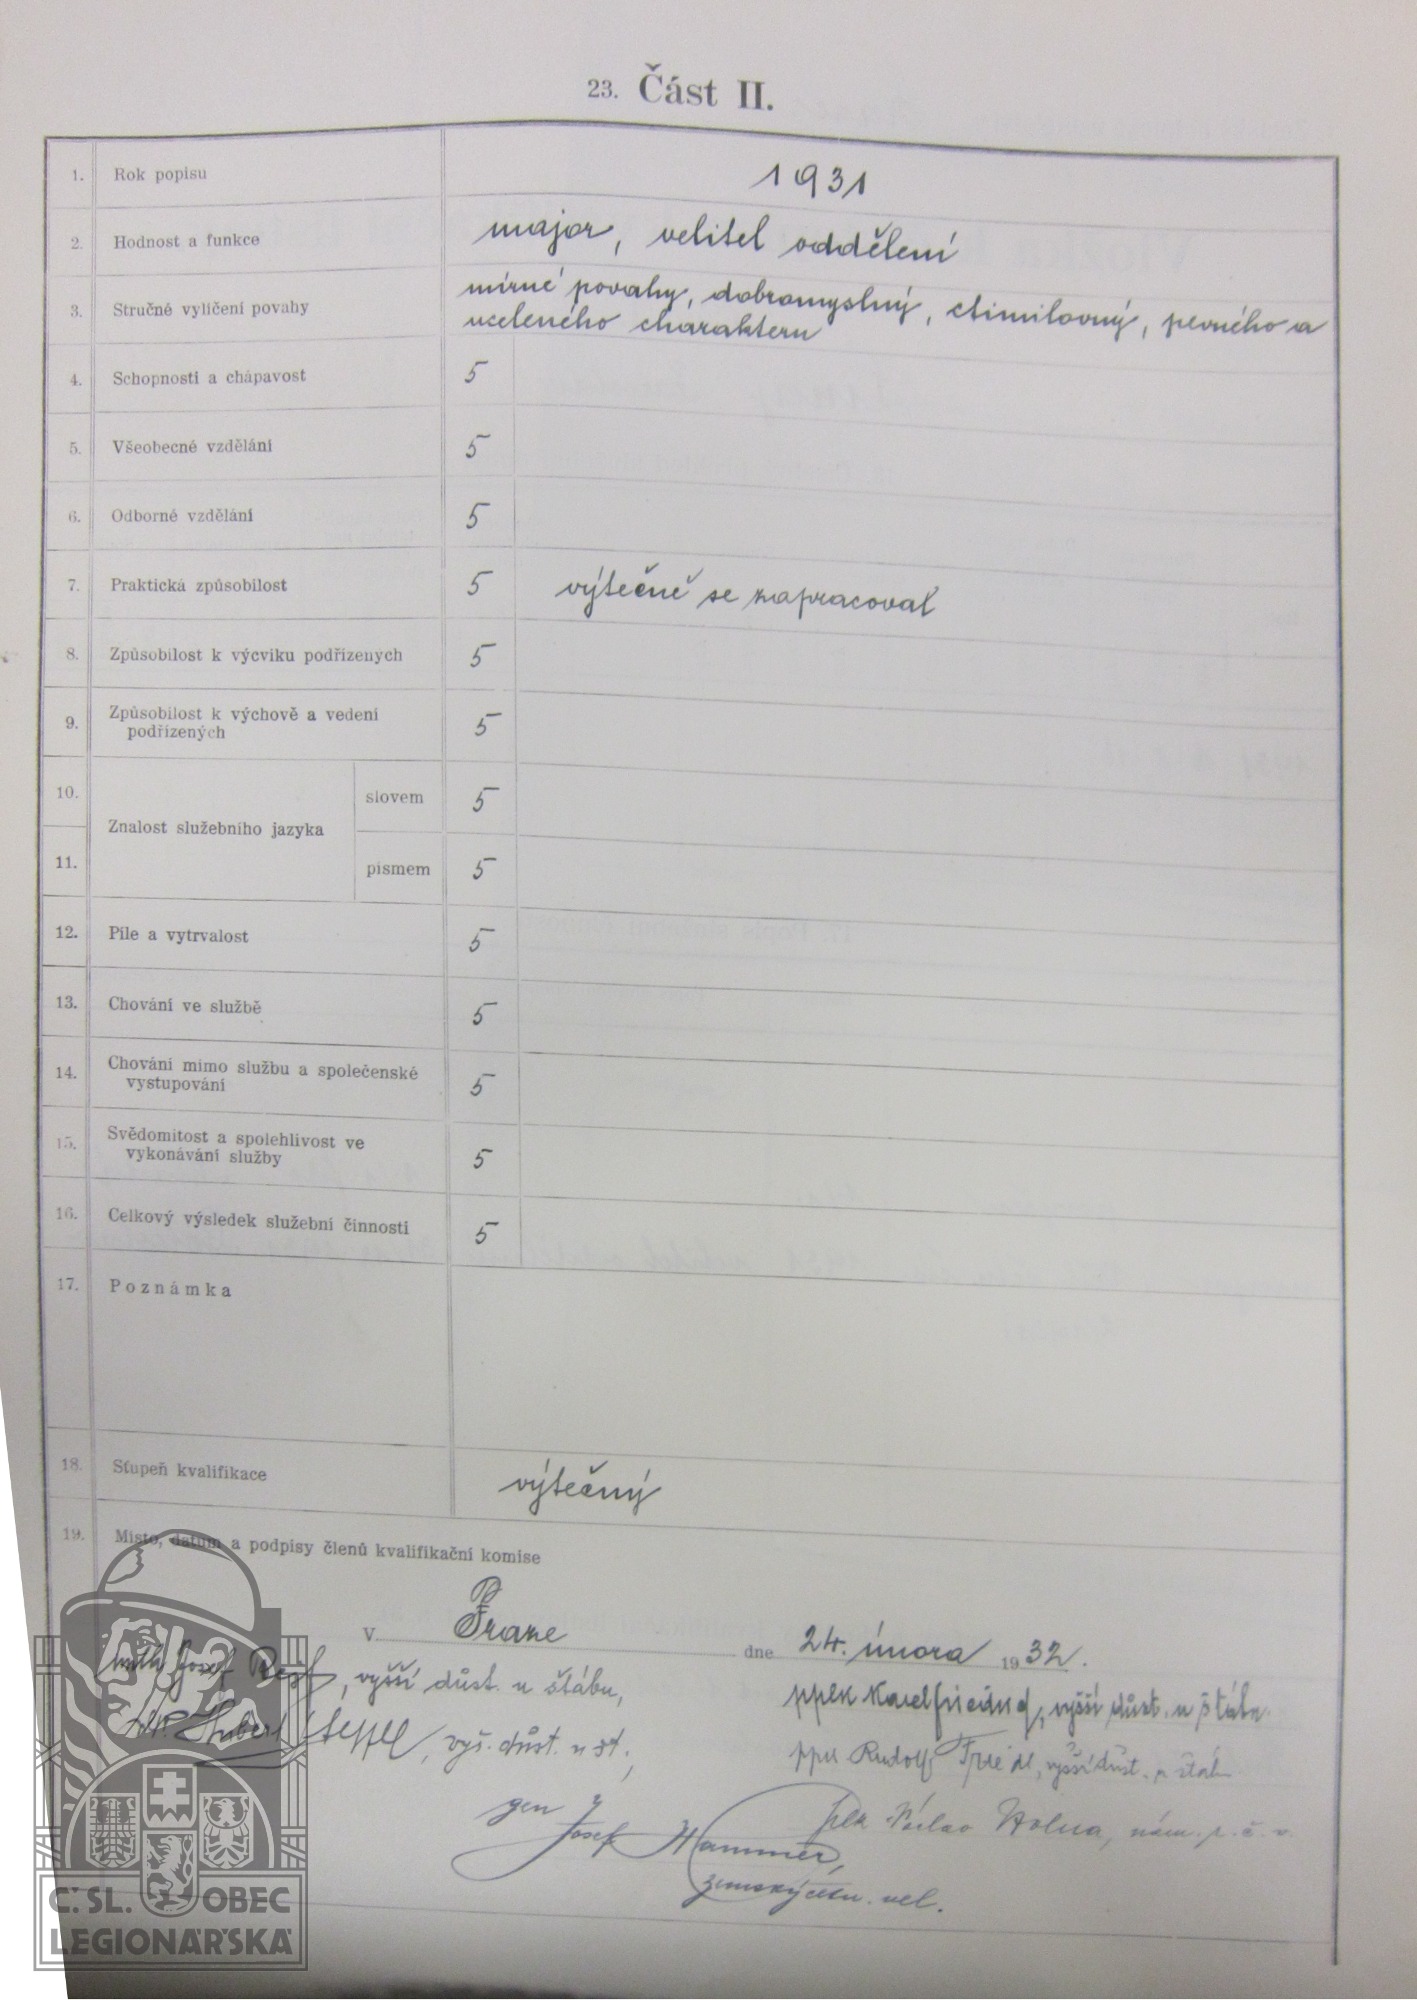 23. Část II.
1. Rok popisu 1931
2. Hodnost a funkce major, velitel oddělení
3. Stručné vylíčení povahy mírné povahy, dobromyslný, ctimilovný, pevného a
uceleného charakteru
4. Schopnosti a chápavost 5
5. Všeobecné vzdělání 5
6. Odborné vzdělání 5
7. Praktická způsobilost 5 výtečně se zapracoval
8. Způsobilost k výcviku podřízených 5
9. Způsobilost k výchově a vedení
podřízených 5
10. Znalost služebního jazyka slovem 5
11. písmem 5
12. Píle a vytrvalost 5
13. Chování ve službě 5
14. Chování mimo službu a společenské
vystupování 5
15. Svědomitost a spolehlivost ve
vykonávání služby 5
16. Celkový výsledek služební činnosti 5
17. Poznámka
18. Stupeň kvalifikace výtečný
19. Místo, datum a podpisy členů kvalifikační komise
V Praze dne 24. února 1932.
Josef, vyšší důst. u štábu,
pplk Karel, vyšší důst. u štábu
Hubert, vyš. důst. u št.,
Rudolf, vyšší důst. u štáb
gen Josef Hammer,
plk Václav Holua, nám. z. č. v.
zemský četn. vel.
Č. SL. OBEC
LEGIONÁŘSKÁ